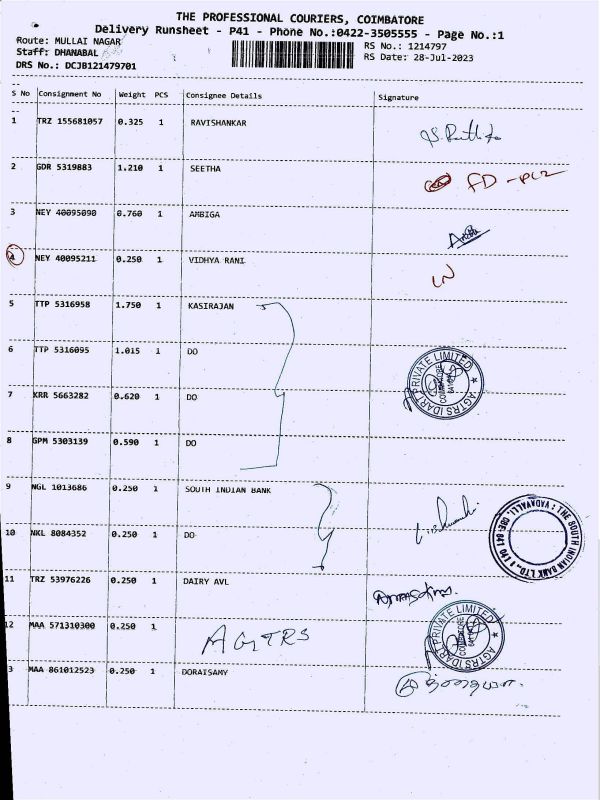 THE PROFESSIONAL COURIERS, COIMBATORE
Delivery Runsheet - P41 - Phone No.:0422-3505555 - Page No.:1
Route: MULLAI NAGAR
RS No.: 1214797
Staff: DHANABAL
RS Date: 28-Jul-2023
DRS No.: DCJB121479701
S No Consignment No Weight PCS Consignee Details Signature
1 TRZ 155681057 0.325 1 RAVISHANKAR
2 GDR 5319883 1.210 1 SEETHA
FD - PL2
3 NEY 40095090 0.760 1 AMBIGA
4 NEY 40095211 0.250 1 VIDHYA RANI
LN
5 TTP 5316958 1.750 1 KASIRAJAN
6 TTP 5316095 1.015 1 DO
AGTRS IDARI PRIVATE LIMITED
COIMBATORE
7 KRR 5663282 0.620 1 DO
8 GPM 5303139 0.590 1 DO
9 NGL 1013686 0.250 1 SOUTH INDIAN BANK
10 NKL 8084352 0.250 1 DO
THE SOUTH INDIAN BANK LTD.,
VADAVALLI, CBE-641
11 TRZ 53976226 0.250 1 DAIRY AVL
12 MAA 571310300 0.250 1 AGTRS
AGTRS IDARI PRIVATE LIMITED
COIMBATORE
3 MAA 861012523 0.250 1 DORAISAMY